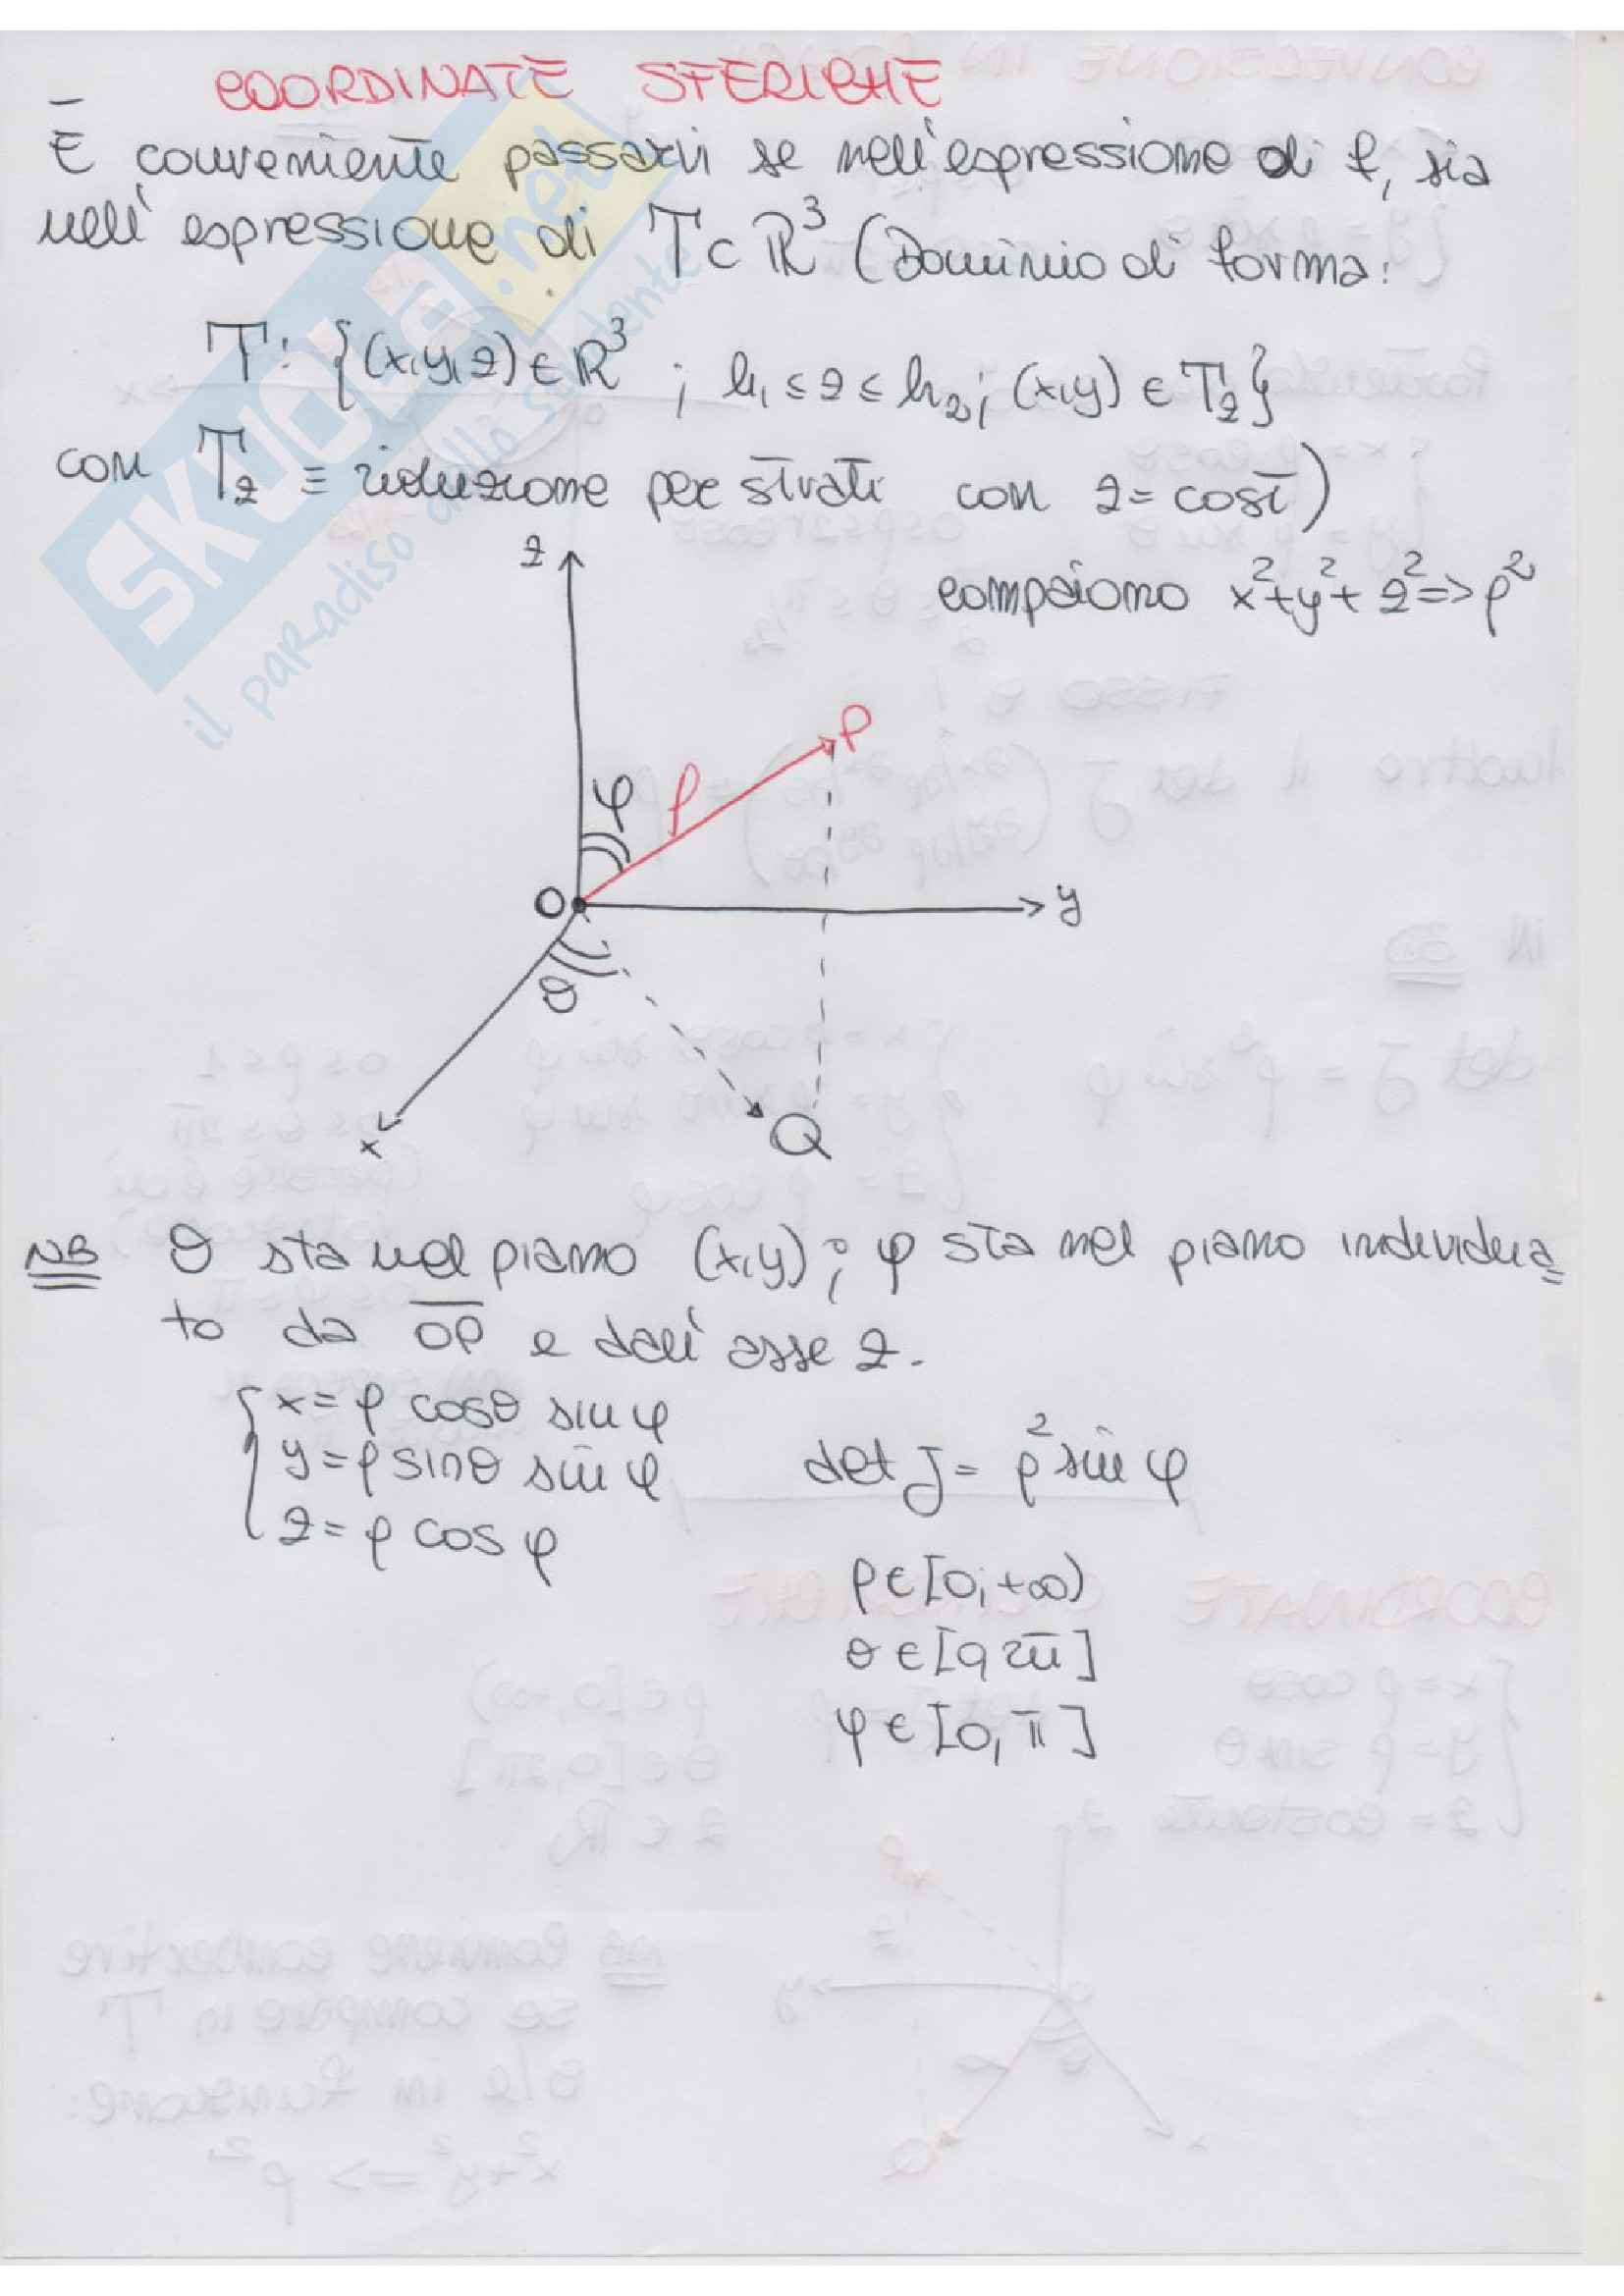 COORDINATE SFERICHE
È conveniente passarvi se nell'espressione di f, sia
nell'espressione di T⊂ℝ³ (Dominio di forma:
T: {(x,y,z)∈ℝ³ ; h₁≤z≤h₂; (x,y)∈T_z}
con T_z ≡ riduzione per strati con z=cost)
compaiono x²+y²+z²=>ρ²
z
P
φ
ρ
O
y
θ
x
Q
NB θ sta nel piano (x,y); φ sta nel piano individua=
to da OP e dall'asse z.
x=ρ cosθ sinφ
y=ρ sinθ sinφ
z=ρ cosφ
det J= ρ² sinφ
ρ∈[0,+∞)
θ∈[0,2π]
φ∈[0,π]
SKUOLA.net
il paradiso dello studente